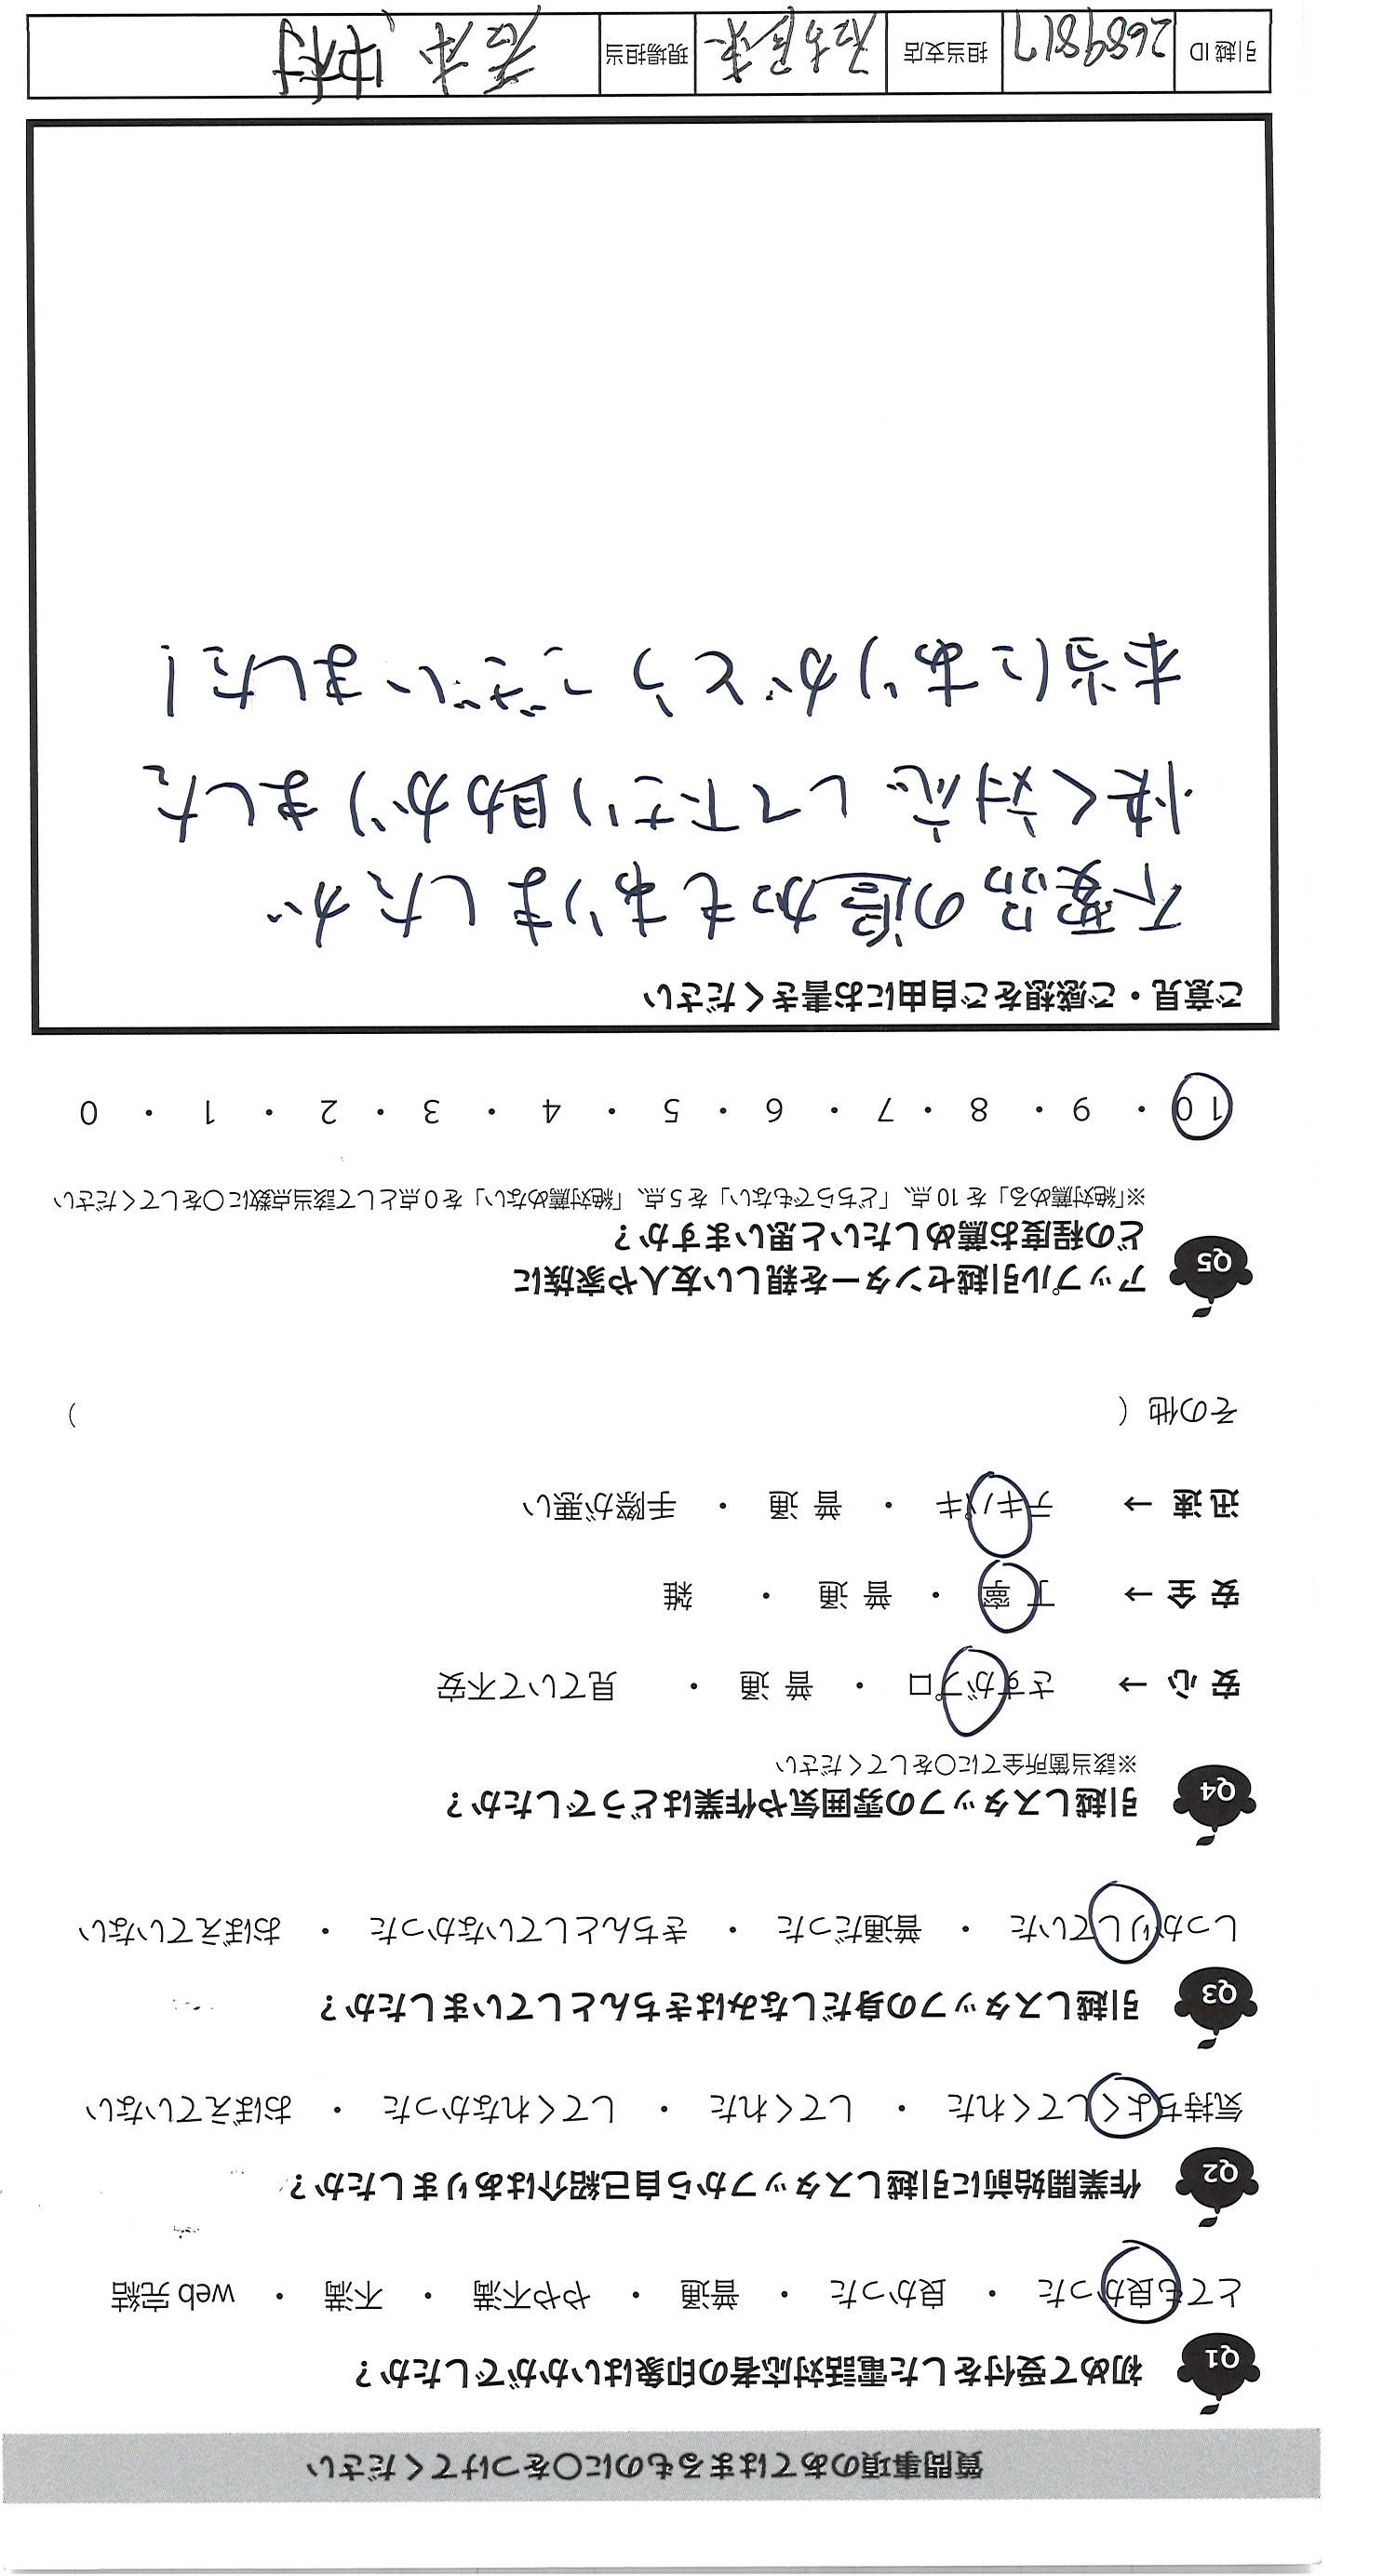 質問事項のあてはまるものに○をつけてください
Q1 初めて受付をした電話対応者の印象はいかがでしたか？
とても良かった ・ 良かった ・ 普通 ・ やや不満 ・ 不満 ・ web 完結
Q2 作業開始前に引越しスタッフから自己紹介はありましたか？
気持ちよくしてくれた ・ してくれた ・ してくれなかった ・ おぼえていない
Q3 引越しスタッフの身だしなみはきちんとしていましたか？
しっかりしていた ・ 普通だった ・ きちんとしていなかった ・ おぼえていない
Q4 引越しスタッフの雰囲気や作業はどうでしたか？
※該当箇所全てに○をしてください
安心 → さすがプロ ・ 普通 ・ 見ていて不安
安全 → 丁寧 ・ 普通 ・ 雑
迅速 → テキパキ ・ 普通 ・ 手際が悪い
その他（ ）
Q5 アップル引越センターを親しい友人や家族に
どの程度お薦めしたいと思いますか？
※「絶対薦める」を10点、「どちらでもない」を5点、「絶対薦めない」を0点として該当点数に○をしてください
10 ・ 9 ・ 8 ・ 7 ・ 6 ・ 5 ・ 4 ・ 3 ・ 2 ・ 1 ・ 0
ご意見・ご感想をご自由にお書きください
不要品の追加もありましたが
快く対応して下さり助かりました
本当にありがとうございました!
引越ID 2689817 担当支店 現場担当 中村